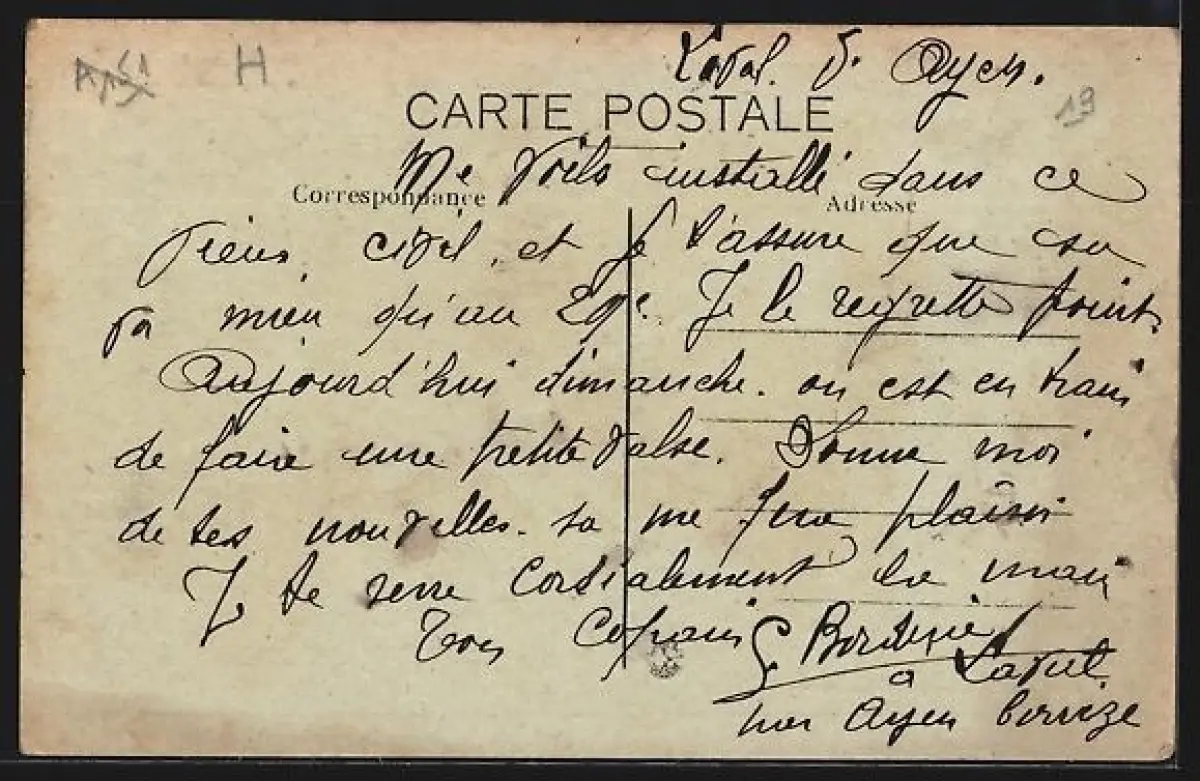 H.
Laval. d. Ayen.
19
CARTE POSTALE
Me voila installé dans ce
Correspondance
Adresse
vieux civil, et je t'assure que sa
va mieu qu'au 29e. Je le regrette point.
Aujourd'hui dimanche. on est en train
de faire une petite valse. Donne moi
de tes nouvelles. sa me fera plaisir
Je te serre cordialement la main
Ton Copain
à Laval.
par Ayen Corrèze